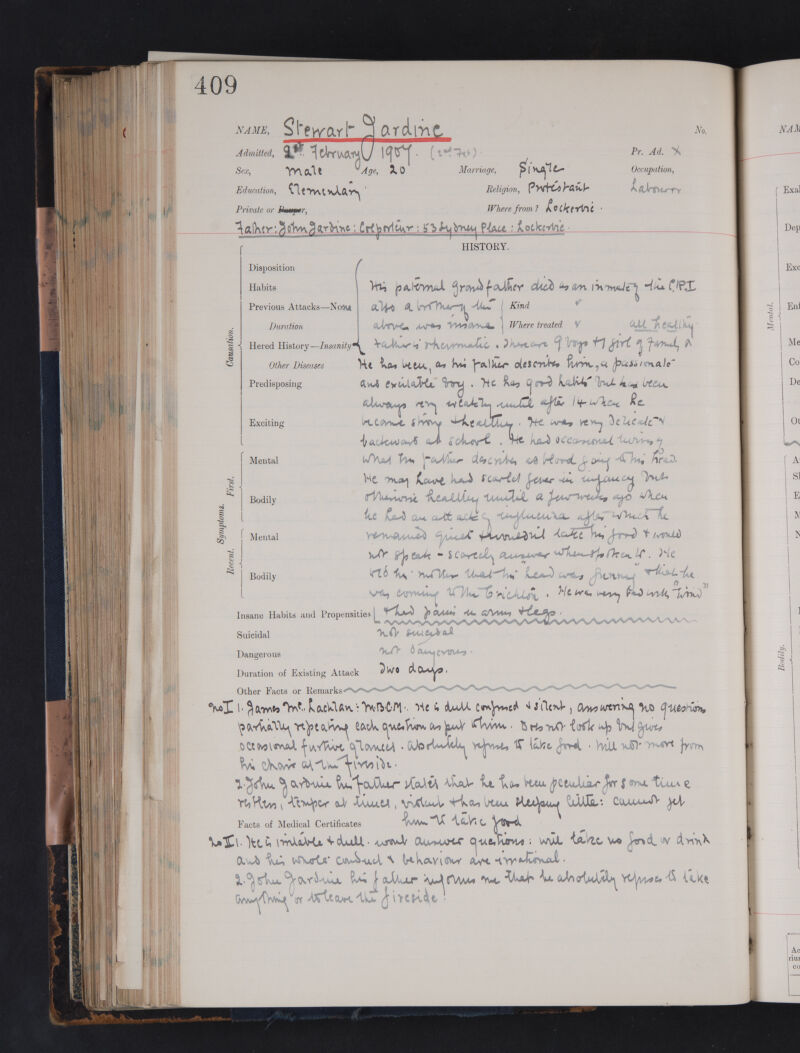 409
NAME, Stewart Jardine No.
Admitted, 2nd February 1907. (2nd Feb) Pr. Ad. X
Sex, Male Age, 20 Marriage, Single Occupation,
Education, Elementary Religion, Protestant Labourer
Private or Pauper, Where from? Lockerbie.
Father: John Jardine: Colporteur: 53 Sydney Place: Lockerbie.
HISTORY.
Disposition
Habits His paternal grandfather died as an inmate of the C.R.I
Previous Attacks—None also a brother of the Kind
Duration above was insane Where treated all healthy
Hered History—Insanity father is rheumatic. There are 9 boys & 1 girl of family,
Other Diseases He has been, as his father describes him, a passionate
Predisposing and excitable boy. He has good habits but has been
always very weakly until after 14 when he
Exciting became strong & healthy. He was very delicate &
backward at school. He had occasional
Mental what the father describes as blood going to his head.
He may have had scarlet fever in infancy but
Bodily otherwise healthy until a few weeks ago when
he had an attack of influenza after which he
Mental remained quiet & wouldn't take his food & would
not speak - scarcely answer when spoken to. He
Bodily told his mother that his head was funny & that he
was coming to the Crichton. He was very bad with "wind"
Insane Habits and Propensities & had pains in arms & legs.
Suicidal not suicidal
Dangerous not dangerous.
Duration of Existing Attack Two days.
Other Facts or Remarks
No I 1. James McLachlan: M.B.C.M. He is dull confused & silent, answering no questions
partially repeating each question as put to him. Does not look up but gives
occasional furtive glances. Absolutely refuses to take food. Will not move from
his chair at the fireside.
2. John Jardine his father states that he has been peculiar for some time
restless, temper at times, violent & has been sleeping little: cannot get
Facts of Medical Certificates him to take food
No II 1. He is irritable & dull. wont answer questions: will take no food or drink
and his whole conduct & behaviour are irrational.
2. John Jardine his father informs me that he absolutely refuses to take
anything or to leave the fireside!
Causation.
Symptoms.
First.
Recent.
NAM
Exal
Dep
Exc
Mental.
Me
Co
De
Bodily.